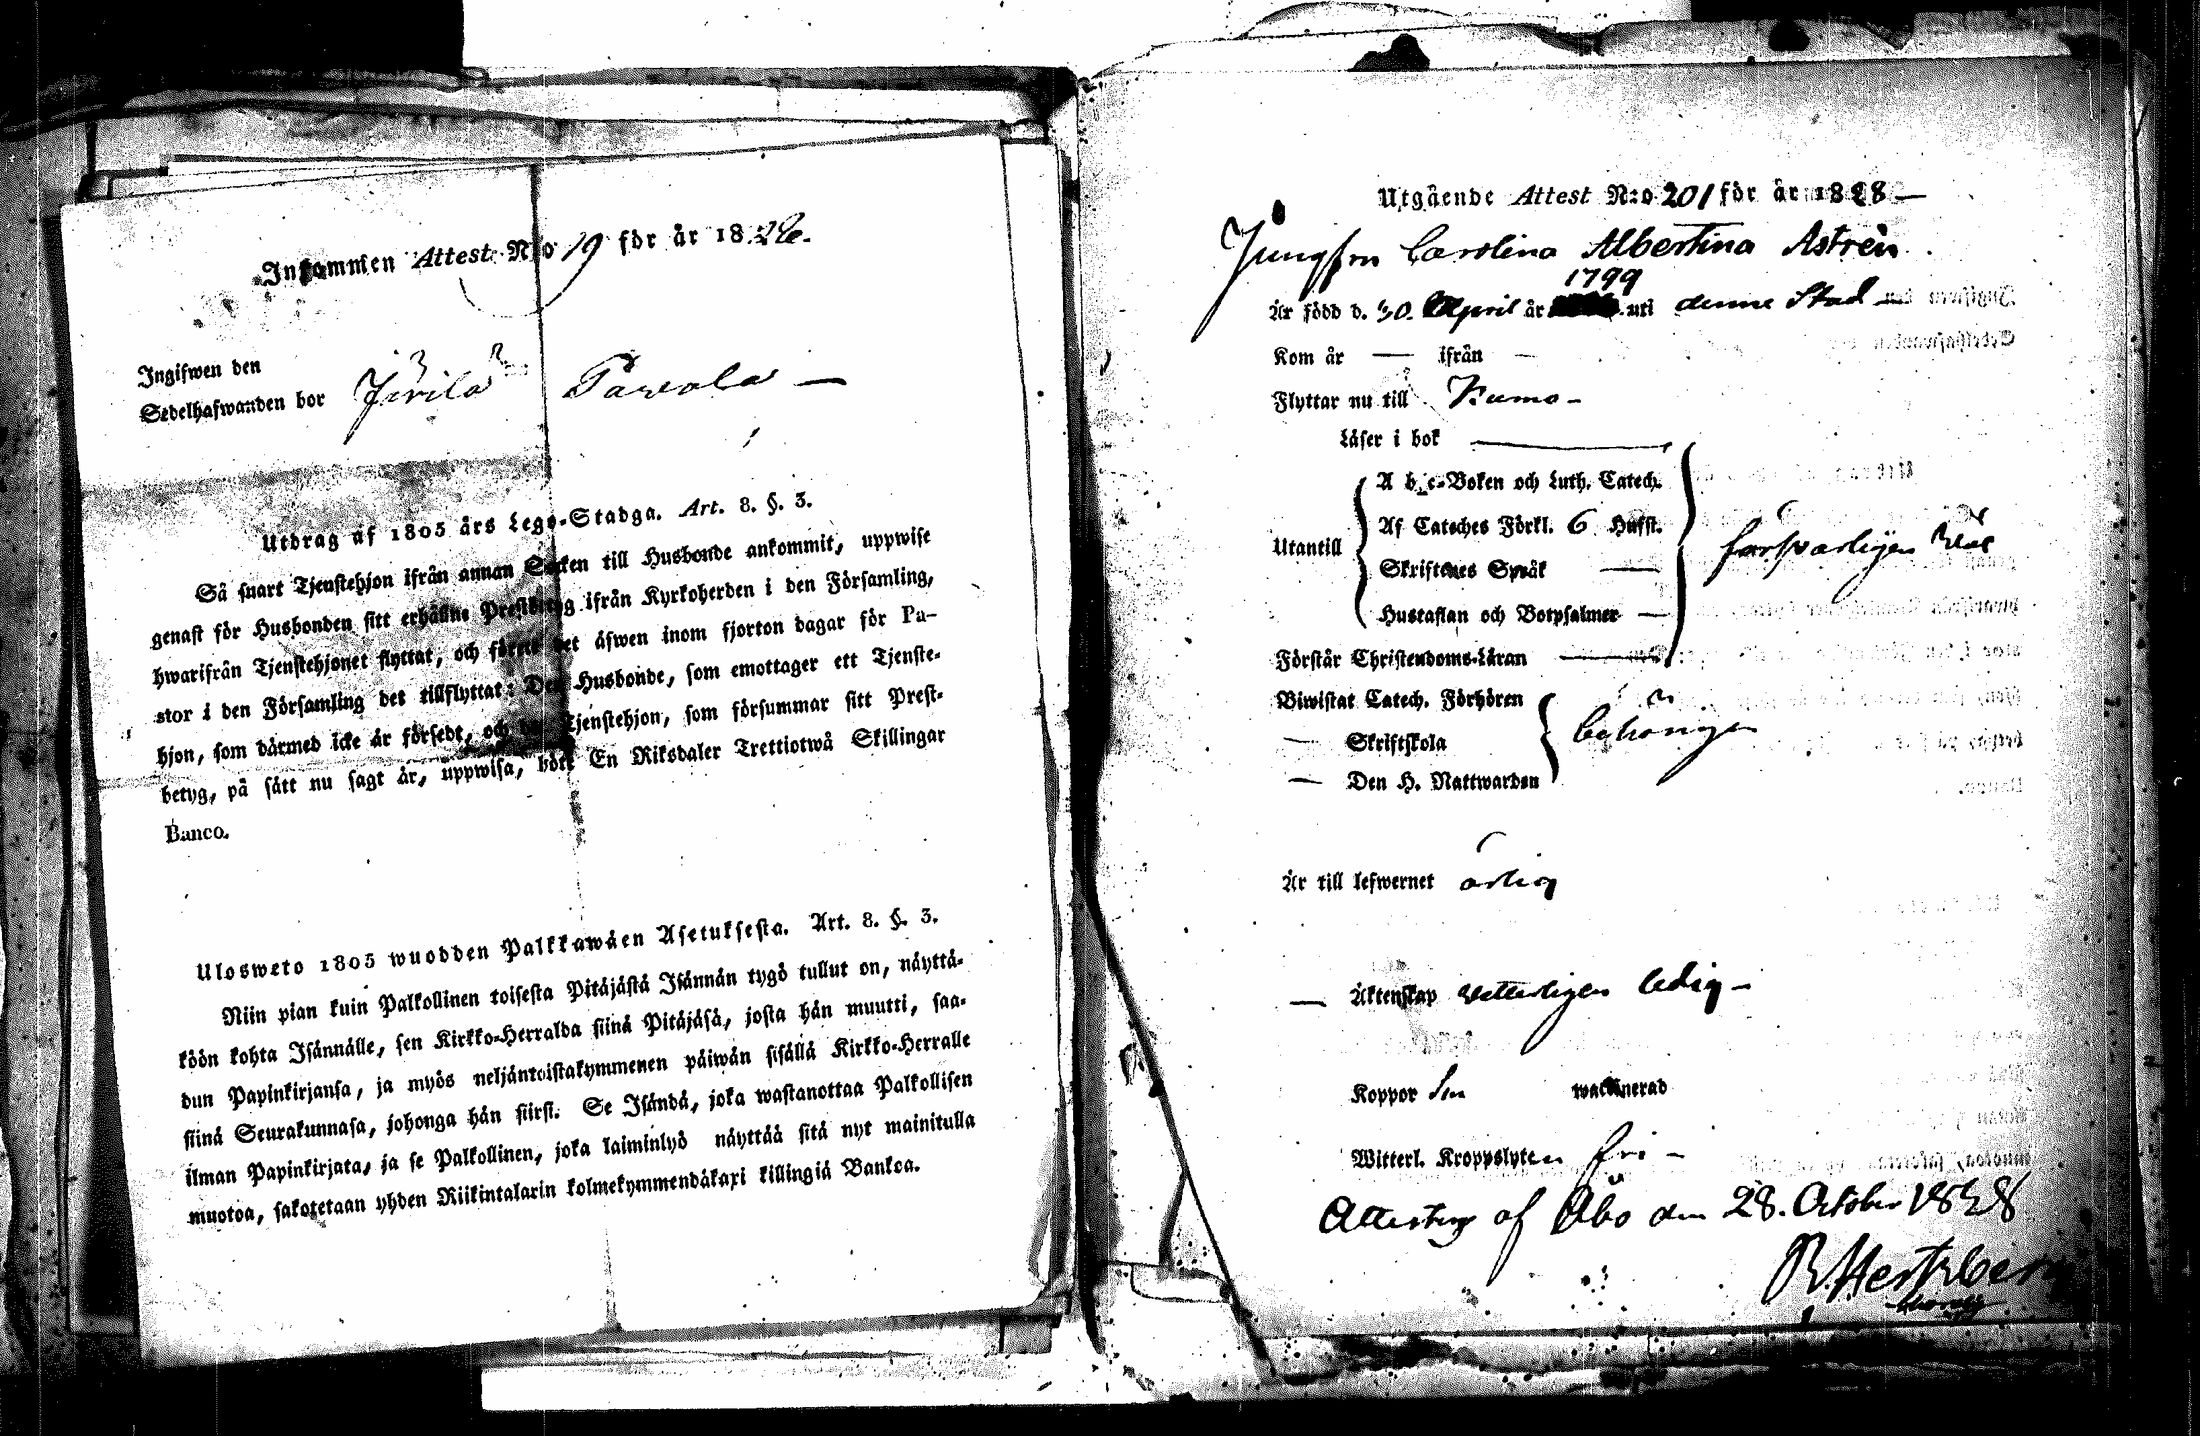 Inkommen Attest N:o 19 för år 18
Ingifwen den
Sedelhafwanden bor
Utdrag af 1805 års Lego-Stadga. Art. 8. §. 3.
Så snart Tjenstehjon ifrån annan Socken till Husbonde ankommit, uppwise
genast för Husbonden sitt erhållne Prestbetyg ifrån Kyrkoherden i den Församling,
hwarifrån Tjenstehjonet flyttat, och förete det äfwen inom fjorton dagar för Pa-
stor i den Församling det tillflyttat: Den Husbonde, som emottager ett Tjenste-
hjon, som därmed icke är försedt, och det Tjenstehjon, som försummar sitt Prest-
betyg, på sätt nu sagt är, uppwisa, böte En Riksdaler Trettiotwå Skillingar
Banco.
Ulosweto 1805 wuodden Palkkawäen Asetuksesta. Art. 8. §. 3.
Niin pian kuin Palkollinen toisesta Pitäjästä Isännän tygö tullut on, näyttä-
köön kohta Isännälle, sen Kirkko-Herralda siinä Pitäjäsä, josta hän muutti, saa-
dun Papinkirjansa, ja myös neljäntoistakymmenen päiwän sisällä Kirkko-Herralle
siinä Seurakunnasa, johonga hän siirst. Se Isändä, joka wastanottaa Palkollisen
ilman Papinkirjata, ja se Palkollinen, joka laiminlyö näyttää sitä nyt mainitulla
muotoa, sakotetaan yhden Riikintalarin kolmekymmendäkaxi killingiä Bankoa.
Utgående Attest N:o 201 för år 1828 —
Jungfru Carolina Albertina Astrèn
1799
Är född d. 30. April år uti denne Stad —
Kom år — ifrån —
Flyttar nu till Kumo —
Läser i bok —
A b c-Boken och Luth. Catech.
Af Cateches Förkl. 6 Hufst.
Utantill
Skriftenes Språk —
Hustaflan och Botpsalmer —
försvarligen väl
Förstår Christendoms-Läran —
Biwistat Catech. Förhören
— Skriftskola
behörigen
— Den H. Nattwarden
Är till lefwernet ärlig
— Äktenskap vetterligen ledig —
Koppor wackinerad
Witterl. Kroppslyten fri —
Attesterg af Åbo den 28. October 1828
R. Hertzberg